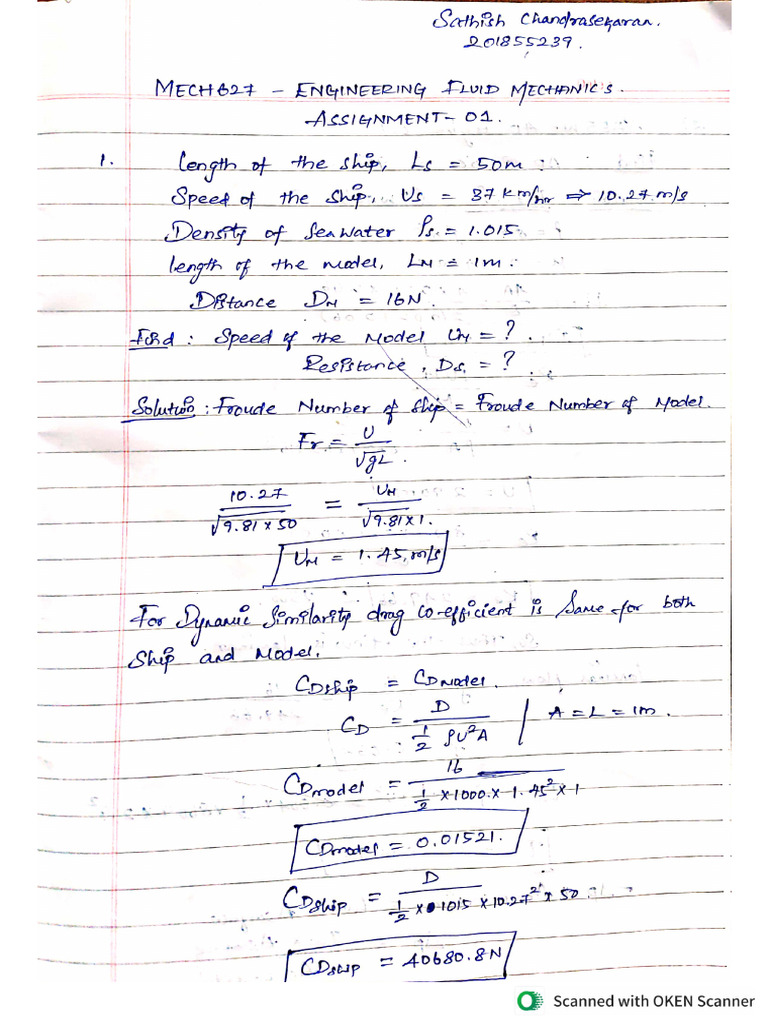 Sathish Chandrasekaran.
201855239.
MECH627 - ENGINEERING FLUID MECHANICS.
ASSIGNMENT- 01.
1. Length of the ship, Ls = 50m.
Speed of the ship, Us = 37 Km/hr ⇒ 10.27 m/s
Density of Sea water ρs = 1.015
length of the model, LM = 1m.
Distance DM = 16N.
Find : Speed of the Model UM = ? .
Resistance, Ds = ? .
Solution : Froude Number of ship = Froude Number of Model.
Fr = U / √gL .
10.27 / √9.81 x 50 = UM / √9.81 x 1.
UM = 1.45 m/s
For Dynamic Similarity drag co-efficient is Same for both
Ship and Model.
CDship = CDModel.
CD = D / ½ ρU²A | A = L = 1m .
CDmodel = 16 / ½ x 1000 x 1.45² x 1
CDmodel = 0.01521.
CDship = D / ½ x 1015 x 10.27² x 50
CDship = 40680.8N
Scanned with OKEN Scanner